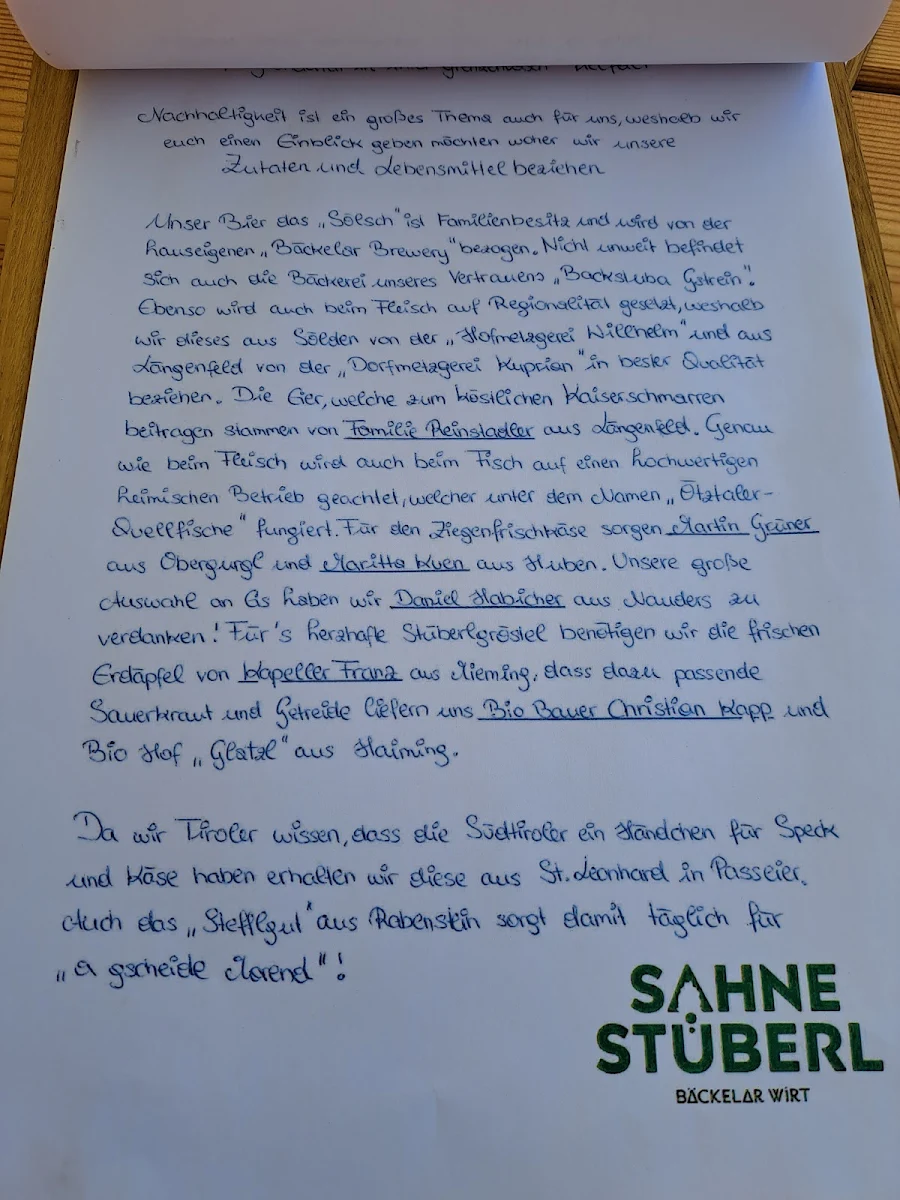 Nachhaltigkeit ist ein großes Thema auch für uns, weshalb wir
euch einen Einblick geben möchten woher wir unsere
Zutaten und Lebensmittel beziehen
Unser Bier das „Sölsch" ist Familienbesitz und wird von der
hauseigenen „Bäckelar Brewery" bezogen. Nicht unweit befindet
sich auch die Bäckerei unseres Vertrauens „Backstuba Gstrein".
Ebenso wird auch beim Fleisch auf Regionalität gesetzt, weshalb
wir dieses aus Sölden von der „Hofmetzgerei Willhelm" und aus
Längenfeld von der „Dorfmetzgerei Kuprian" in bester Qualität
beziehen. Die Eier, welche zum köstlichen Kaiserschmarren
beitragen stammen von Familie Reinstadler aus Längenfeld. Genau
wie beim Fleisch wird auch beim Fisch auf einen hochwertigen
heimischen Betrieb geachtet, welcher unter dem Namen „Ötztaler-
Quellfische" fungiert. Für den Ziegenfrischkäse sorgen Martin Grüner
aus Obergurgl und Maritta Kuen aus Huben. Unsere große
Auswahl an Eis haben wir Daniel Habicher aus Nauders zu
verdanken! Für's herzhafte Stüberlgröstel benötigen wir die frischen
Erdäpfel von Kapeller Franz aus Mieming, dass dazu passende
Sauerkraut und Getreide liefern uns Bio Bauer Christian Kapp und
Bio Hof „Glatzl" aus Haiming.
Da wir Tiroler wissen, dass die Südtiroler ein Händchen für Speck
und Käse haben erhalten wir diese aus St. Leonhard in Passeier.
Auch das „Stefflgut" aus Rabenstein sorgt damit täglich für
„a gscheide Marend"!
SAHNE
STÜBERL
BÄCKELAR WIRT